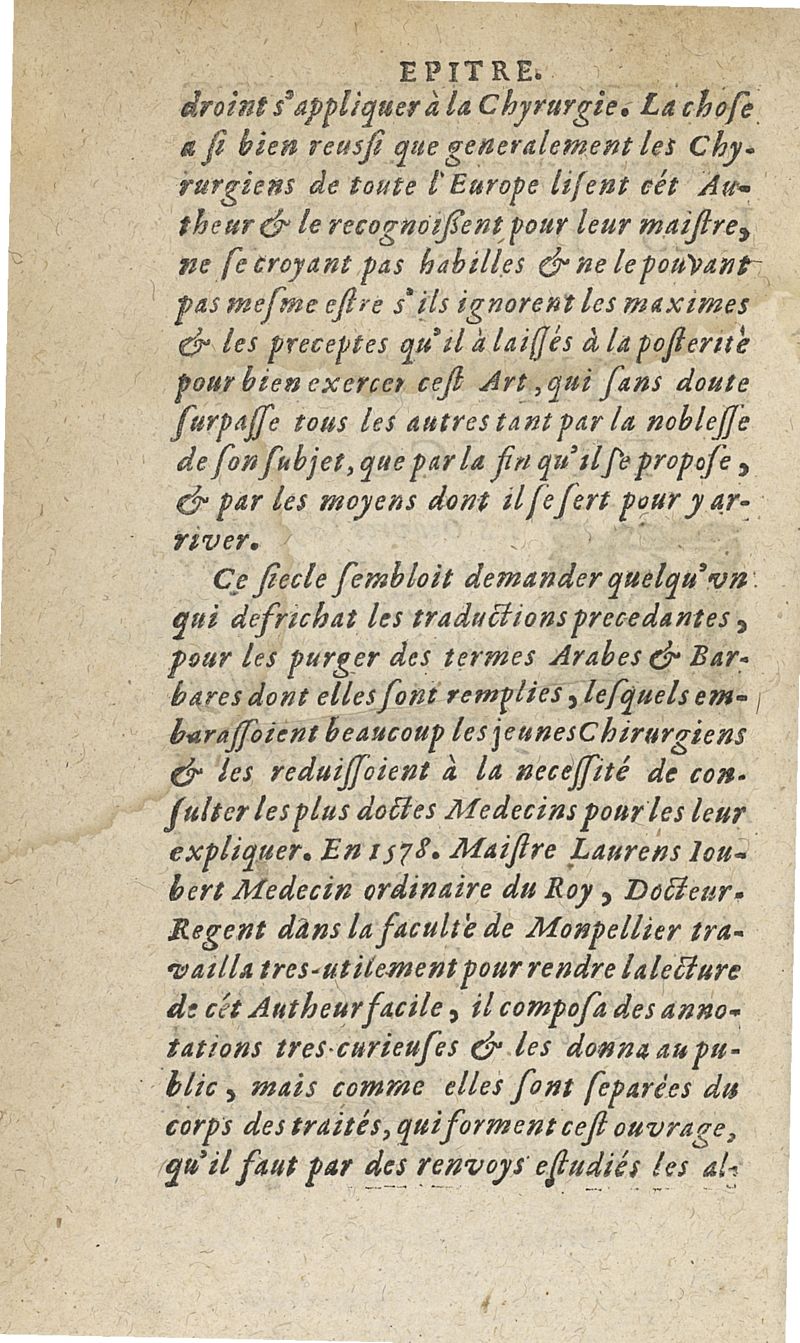 EPITRE.
droint s'appliquer à la Chyrurgie. La choſe
a ſi bien reusſi que generalement les Chy-
rurgiens de toute l'Europe liſent cét Au-
theur & le recognoiſſent pour leur maiſtre,
ne ſe croyant pas habilles & ne le pouvant
pas meſme eſtre s'ils ignorent les maximes
& les preceptes qu'il à laiſſés à la poſteritè
pour bien exercer ceſt Art, qui ſans doute
ſurpaſſe tous les autres tant par la nobleſſe
de ſon ſubjet, que par la fin qu'il ſe propoſe,
& par les moyens dont il ſe ſert pour y ar-
river.
Ce ſiecle ſembloit demander quelqu'vn
qui defrichat les traductions precedantes,
pour les purger des termes Arabes & Bar-
bares dont elles ſont remplies, leſquels em-
baraſſoient beaucoup les jeunes Chirurgiens
& les reduiſſoient à la neceſſité de con-
ſulter les plus doctes Medecins pour les leur
expliquer. En 1578. Maiſtre Laurens Iou-
bert Medecin ordinaire du Roy, Docteur-
Regent dans la facultè de Monpellier tra-
vailla tres-utilement pour rendre la lecture
de cét Autheur facile, il compoſa des anno-
tations tres-curieuſes & les donna au pu-
blic, mais comme elles ſont ſeparées du
corps des traités, qui forment ceſt ouvrage,
qu'il faut par des renvoys eſtudiés les al-